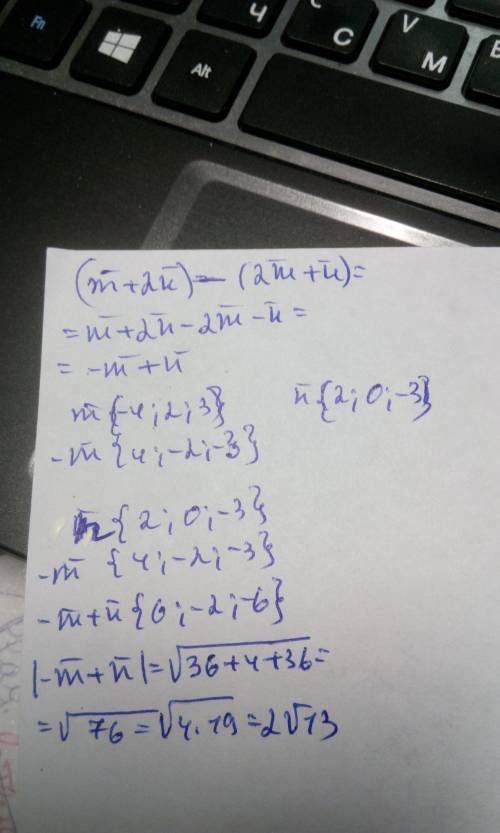 Fn
Alt
Ч
C
С
V
М
B
(m̅+2n̅)-(2m̅+n̅)=
=m̅+2n̅-2m̅-n̅=
=-m̅+n̅
m̅{-4;2;3} n̅{2;0;-3}
-m̅{4;-2;-3}
n̅{2;0;-3}
-m̅ {4;-2;-3}
-m̅+n̅{6;-2;-6}
|-m̅+n̅|=√36+4+36=
=√76=√4·19=2√19